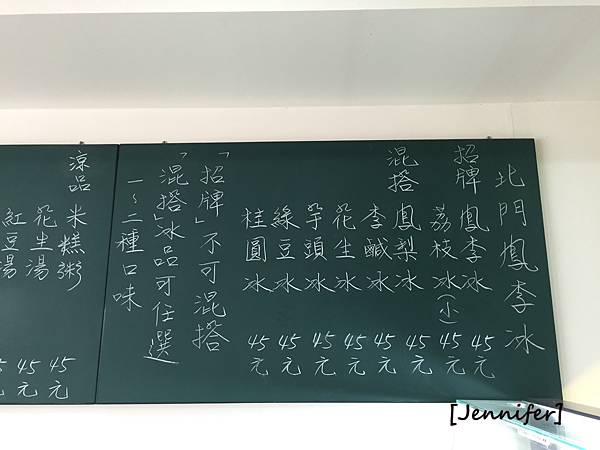 北門鳳李冰
招牌 鳳李冰 45元
荔枝冰(小) 45元
混搭 鳳梨冰 45元
李鹹冰 45元
花生冰 45元
芋頭冰 45元
綠豆冰 45元
桂圓冰 45元
「招牌」不可混搭
「混搭」冰品可任選
一~二種口味
涼品 米糕粥 45元
花生湯 45元
紅豆湯 元
[Jennifer]